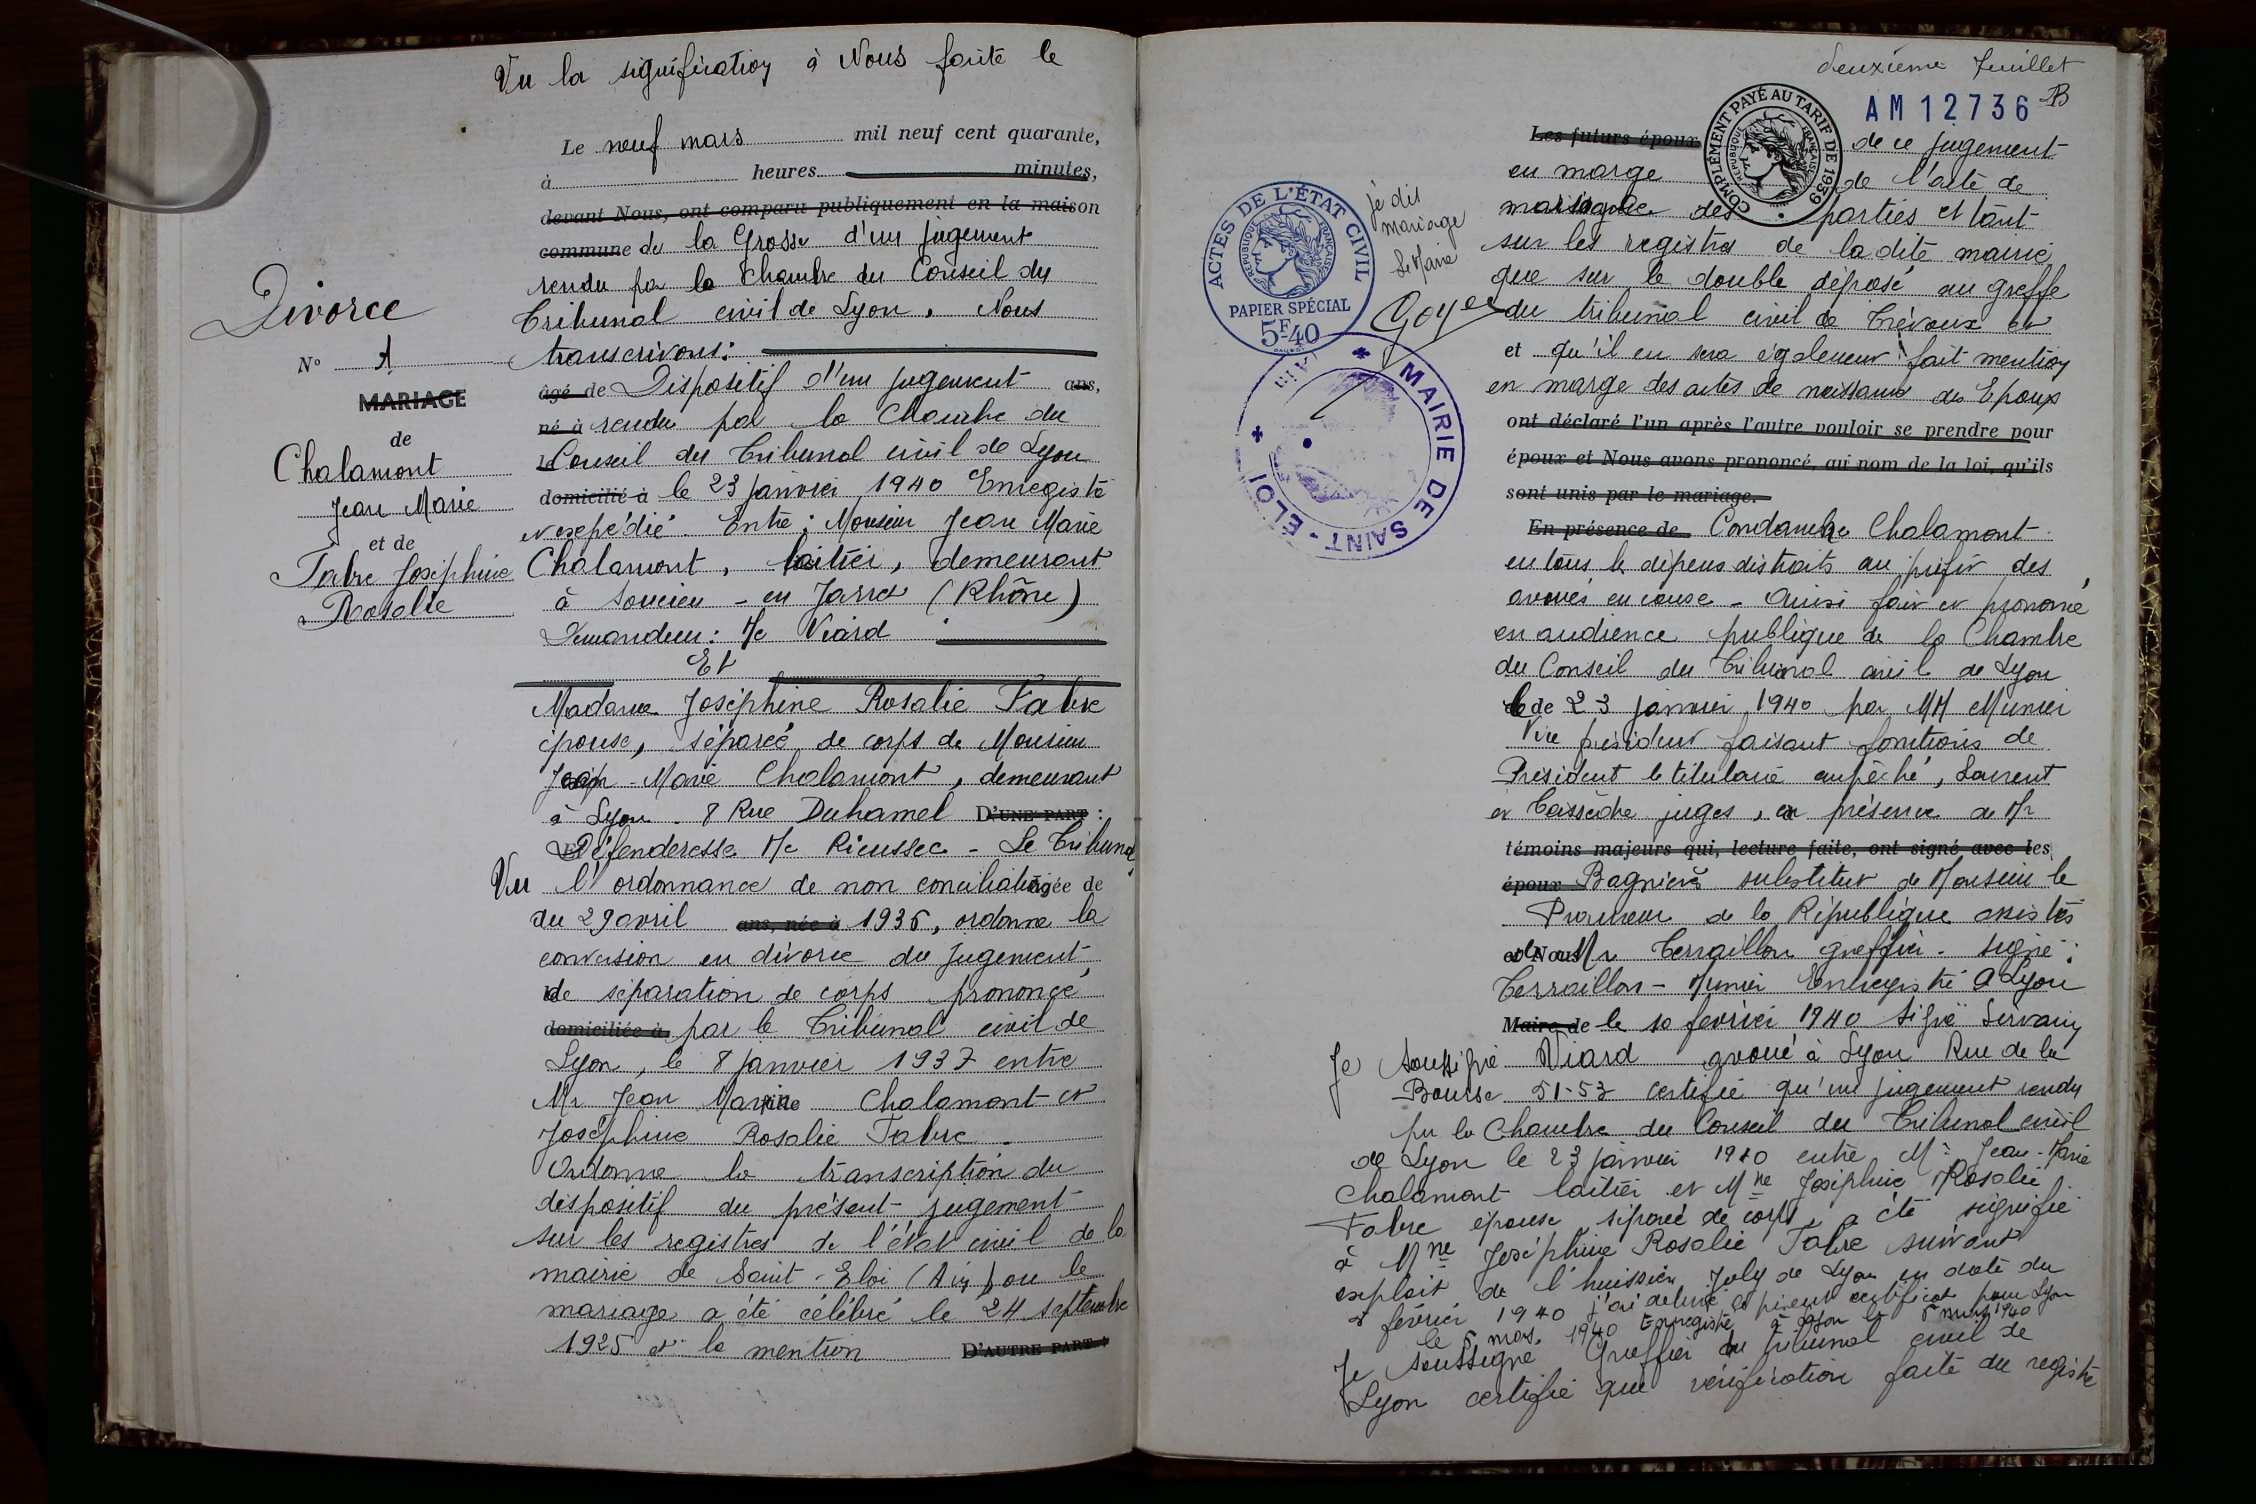 Vu la signification à Nous faite le
Le neuf mars mil neuf cent quarante,
à heures minutes,
devant Nous, ont comparu publiquement en la maison
commune de la Grosse d'un jugement
rendu par la Chambre du Conseil du
Tribunal civil de Lyon, Nous
transcrivons:
âgé de Dispositif d'un jugement ans,
né à rendu par la Chambre du
Conseil du Tribunal civil de Lyon
domicilié à le 23 janvier 1940 Enregistré
et expédié. Entre: Monsieur Jean Marie
Chalamont, laitier, demeurant
à Soucieu-en Jarret (Rhône)
Demandeur: Me Viard
Et
Madame Joséphine Rosalie Fabre
épouse, séparée de corps de Monsieur
Jean-Marie Chalamont, demeurant
à Lyon. 8 Rue Duhamel D'UNE PART:
Défenderesse Me Rieussec - Le Tribunal
Vu l'ordonnance de non conciliation âgée de
du 29 avril ans, née à 1936, ordonne la
conversion en divorce du Jugement
de séparation de corps prononcé
domiciliée à par le Tribunal civil de
Lyon, le 8 janvier 1937 entre
Mr Jean Marie Chalamont et
Joséphine Rosalie Fabre.
Ordonne la transcription du
dispositif du présent jugement
sur les registres de l'état civil de la
mairie de Saint-Eloi (Ain) ou le
mariage a été célébré le 24 septembre
1925 et la mention D'AUTRE PART:
Divorce
No 1
MARIAGE
de
Chalamont
Jean Marie
et de
Fabre Joséphine
Rosalie
deuxième feuillet
AM 12736 B
COMPLÉMENT PAYÉ AU TARIF DE 1939
RÉPUBLIQUE FRANÇAISE
Les futurs époux de ce jugement
en marge de l'acte de
mariage des parties et tant
sur les registres de la dite mairie
que sur le double déposé au greffe
du tribunal civil de Trévoux
et qu'il en sera également fait mention
en marge des actes de naissance des Epoux
ont déclaré l'un après l'autre vouloir se prendre pour
époux et Nous avons prononcé, au nom de la loi, qu'ils
sont unis par le mariage.
En présence de Condamne Chalamont
en tous les dépens distraits au profit des
avoués en cause - Ainsi fait et prononcé
en audience publique de la Chambre
du Conseil du Tribunal civil de Lyon
le 23 janvier 1940 par MM Munier
Vice président faisant fonctions de
Président le titulaire empêché, Laurent
et juges, en présence de Mr
témoins majeurs qui, lecture faite, ont signé avec les
époux substitut de Monsieur le
Procureur de la République assistés
et Nous de Mr Terraillon greffier. signé:
Terraillon - Munier Enregistré à Lyon
Maire de le 10 février 1940 signé
Je soussigné Viard avoué à Lyon Rue de la
Bourse 51-53 certifie qu'un jugement rendu
par la Chambre du Conseil du Tribunal civil
de Lyon le 23 janvier 1940 entre Mr Jean-Marie
Chalamont laitier et Mme Joséphine Rosalie
Fabre épouse séparée de corps a été signifié
à Mme Joséphine Rosalie Fabre suivant
exploit de l'huissier July de Lyon en date du
février 1940 j'ai délivré le présent certificat pour Lyon
le 5 mars 1940 Enregistré à Lyon le 5 mars 1940
Je soussigné Greffier du Tribunal civil de
Lyon certifie que vérification faite du registre
ACTES DE L'ÉTAT CIVIL
RÉPUBLIQUE FRANÇAISE
PAPIER SPÉCIAL
5F40
je dis
mariage
Le Maire
Goyer
MAIRIE DE SAINT-ELOI
AIN